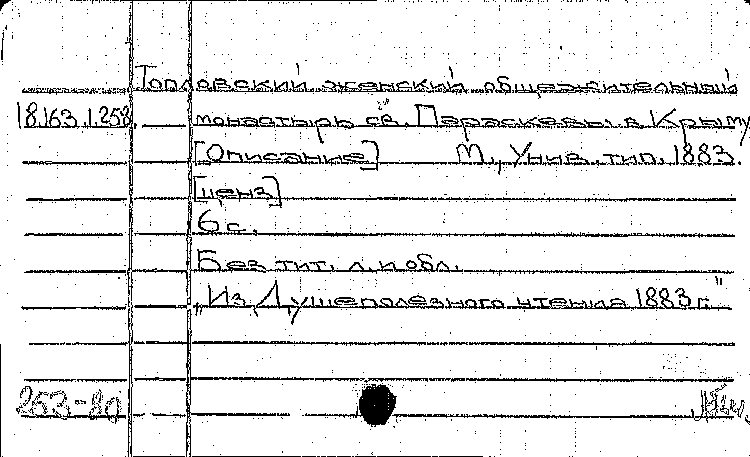 Топловский женский общежительный
18.163.1.258. монастырь св. Параскевы в Крыму
[Описание] М., Унив. тип. 1883.
[ценз]
6 с.
Без тит. л. и обл.
„Из Душеполезного чтения 1883 г."
253-80